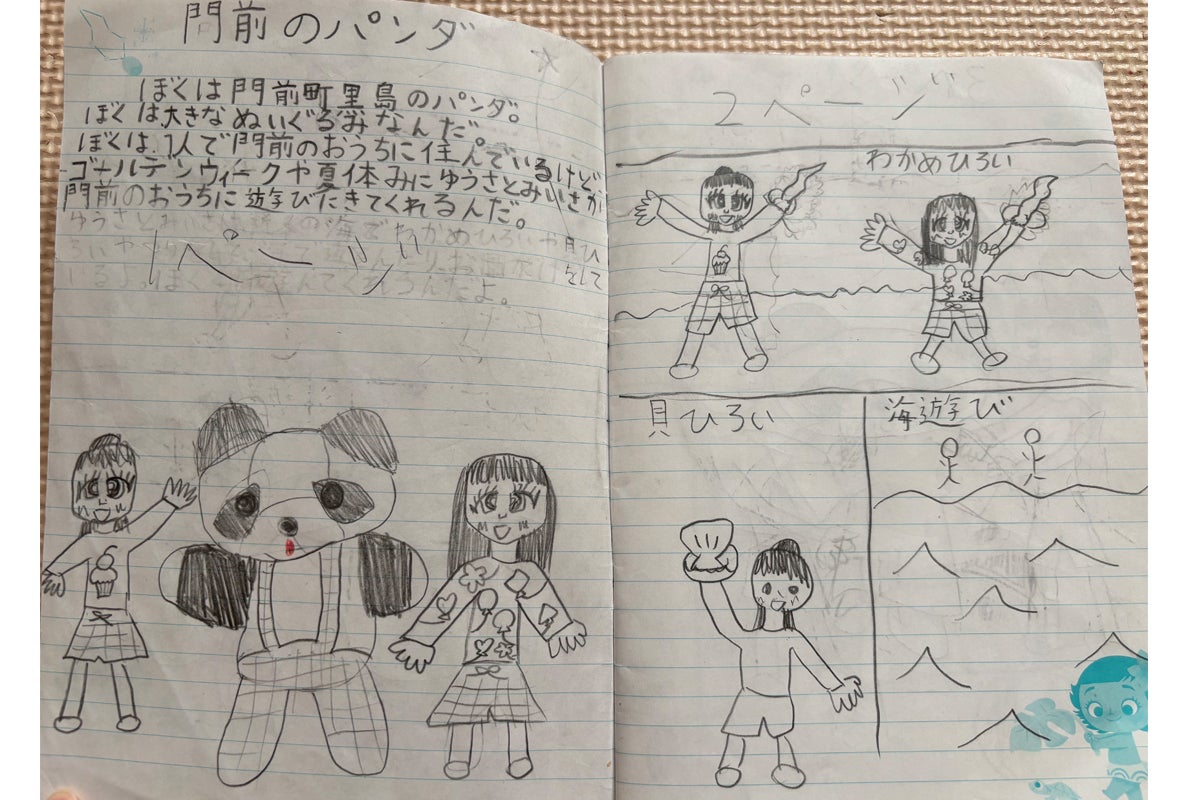 門前のパンダ
ぼくは門前町黒島のパンダ。
ぼくは大きなぬいぐるみなんだ。
ぼくは、1人で門前のおうちに住んでいるけど、
ゴールデンウィークや夏休みにゆうさとみいさが
門前のおうちに遊びにきてくれるんだ。
ゆうさとみいさは の海でわかめひろいや貝ひ
ろいや をして
いるよ。ぼく んでくれるんだよ。
1ページ
2ページ
わかめひろい
貝ひろい
海遊び